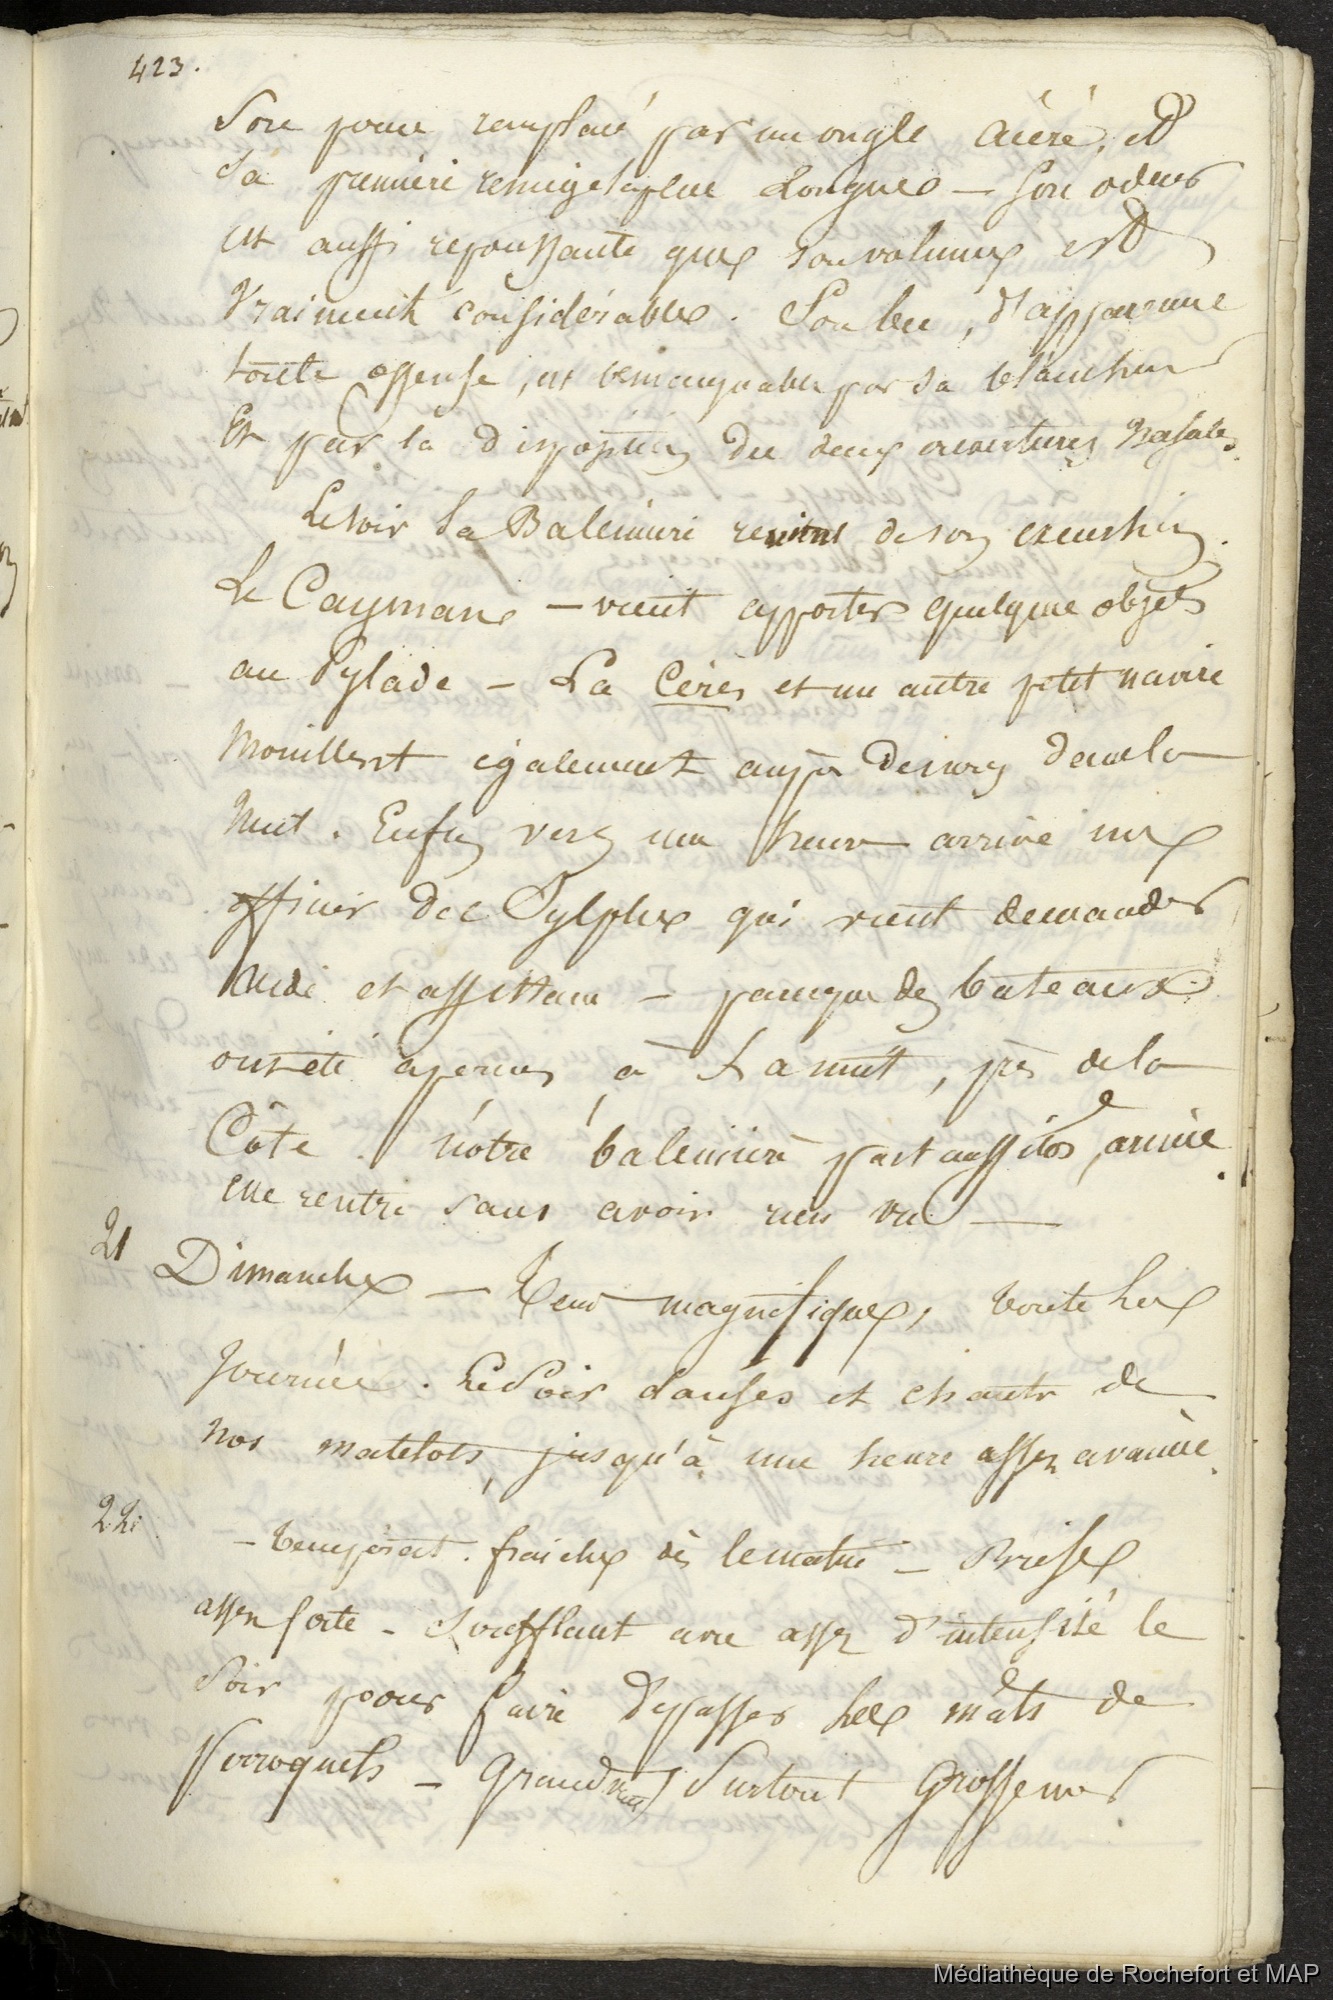 423.
Son pouce remplacé par un ongle acéré, et
Sa première remige la plus Longue — Son odeur
Est aussi repoussante que son volume est
Vraiment considérable. Son bec, d'apparence
toute osseuse, est remarquable par sa blancheur
Et par la disposition des deux ouvertures Nasales.
Le soir La Baleinière revint de son excursion.
Le Cayman — vient apporter quelques objets
au Pylade — La Cérès et un autre petit navire
Mouillent également auprès de nous dans la
Nuit. Enfin vers une heure arrive un
officier de la Sylphe qui vient demander
aide et assistance — parceque des bateaux
ont été aperçus, à La nuit, près de la
Côte. Nôtre baleinière part aussitôt, armée.
elle rentre sans avoir rien vu —
21 Dimanche — Tems magnifique, toute La
Journée. Le Soir danses et chants de
Nos matelots, jusqu'à une heure assez avancée.
22. — Températ. fraiche dès le matin — Brise
assez forte — Soufflant avec assez d'intensité le
Soir pour faire dépasser Les mâts de
Perroquets — Grand Surtout Grosse mer
Médiathèque de Rochefort et MAP